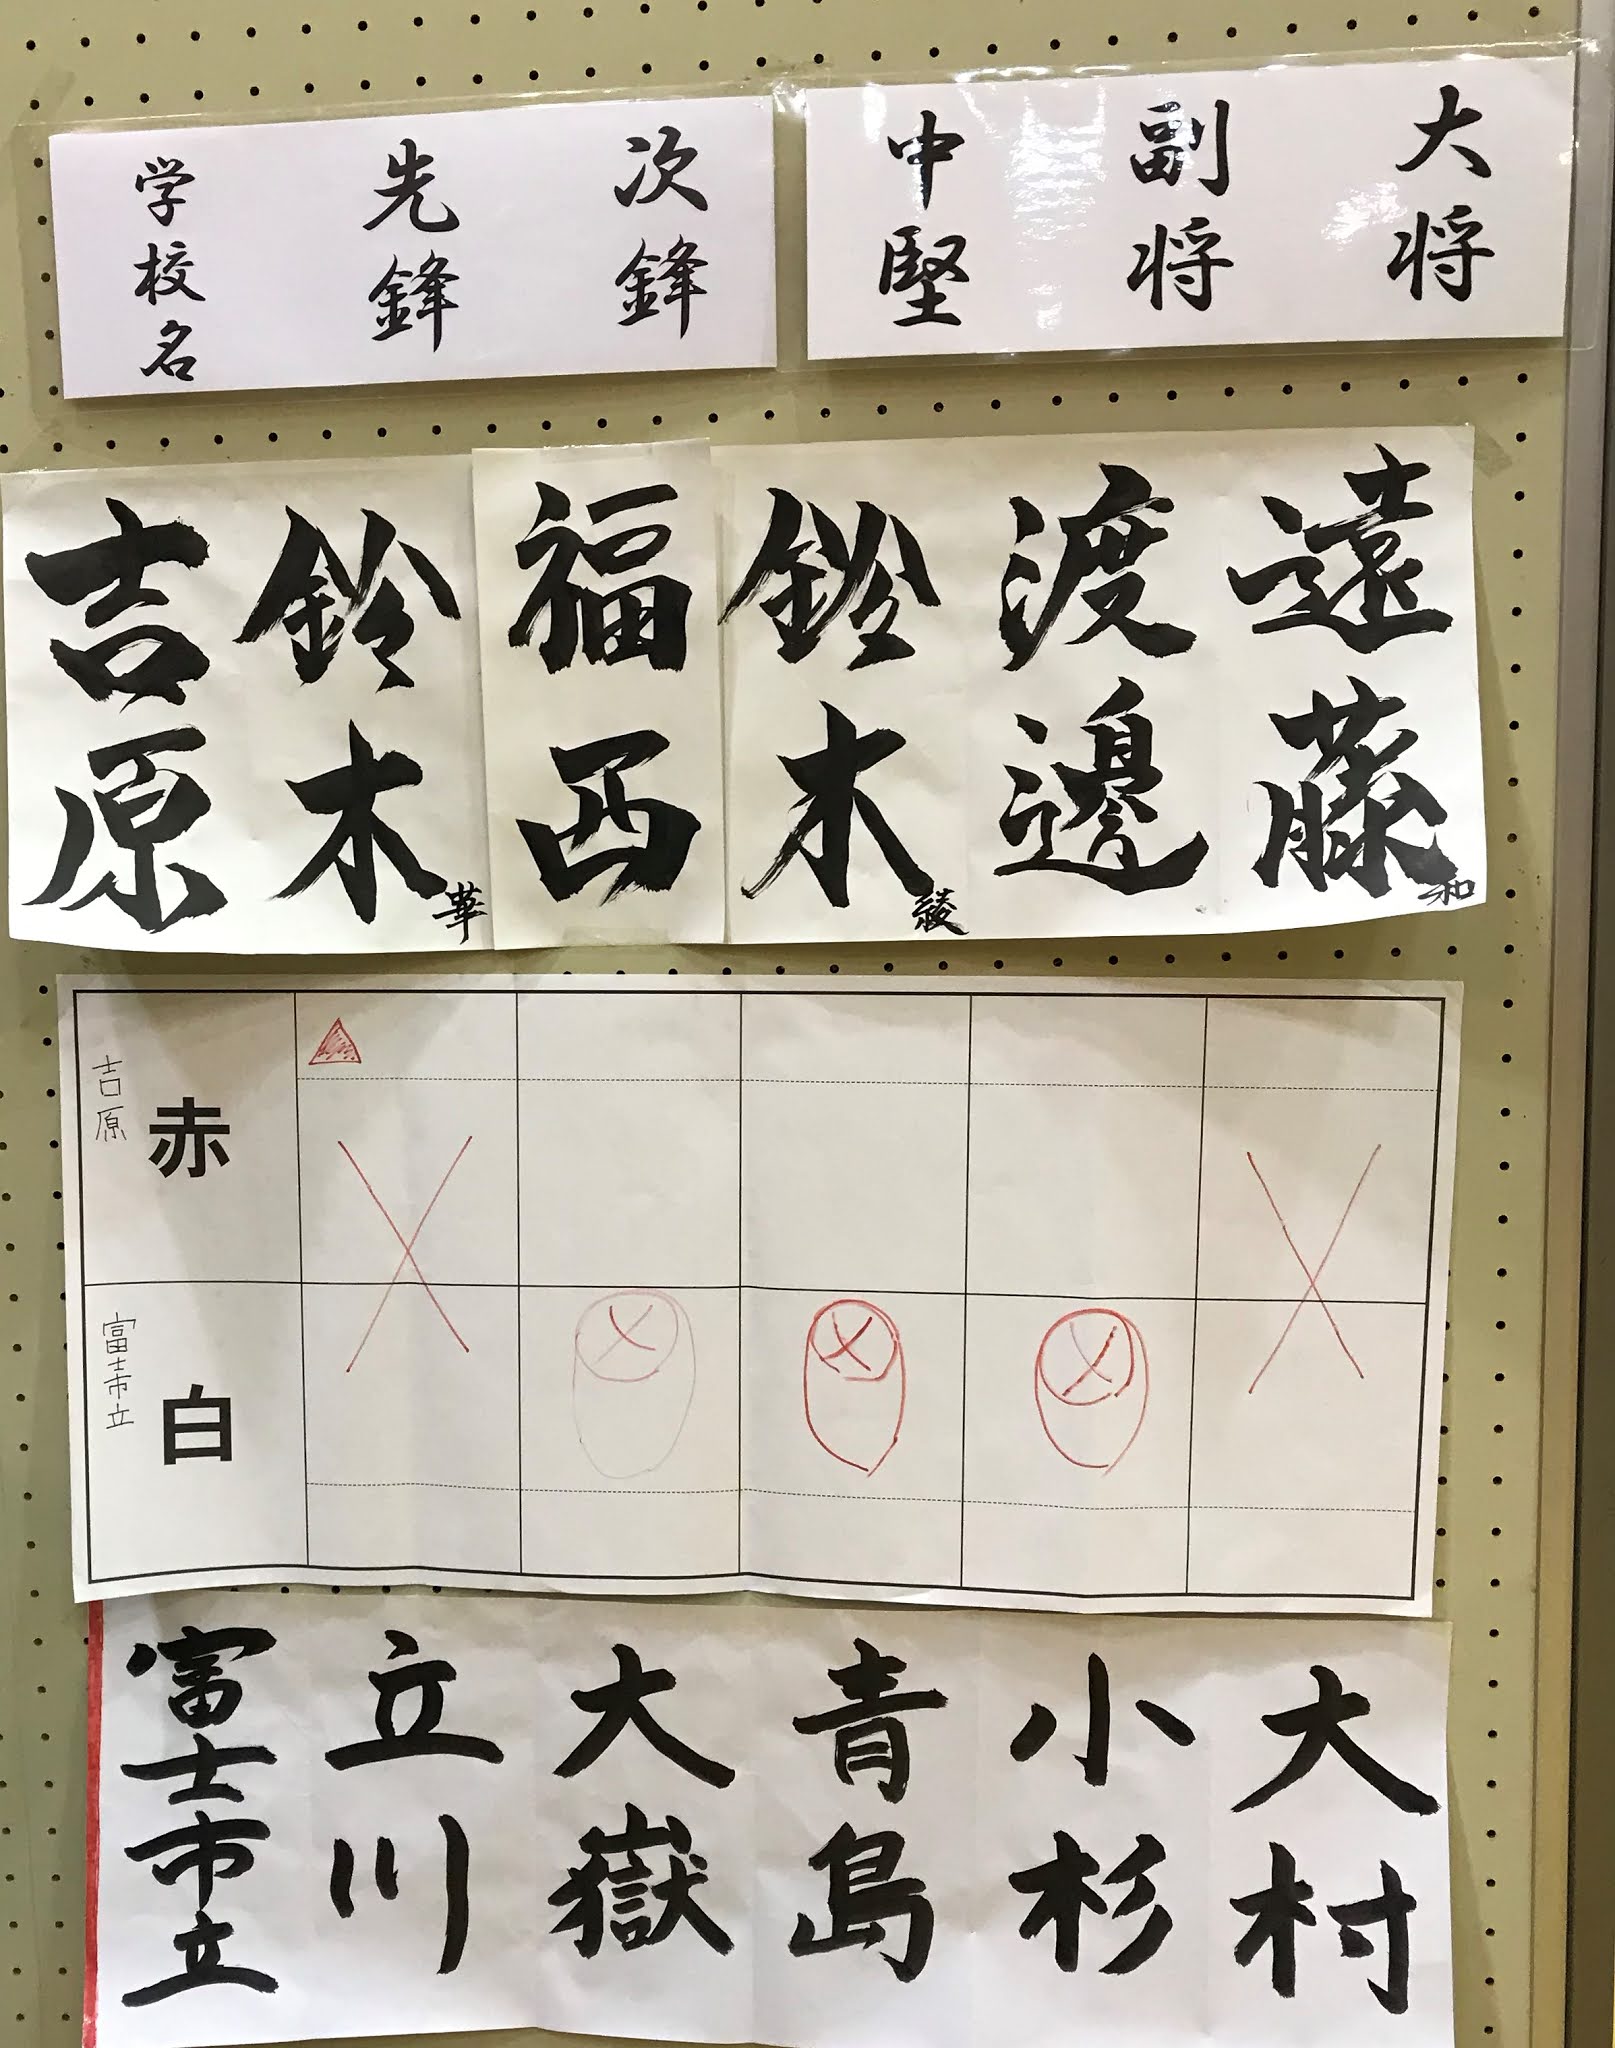 学校名
先鋒
次鋒
中堅
副将
大将
吉原
鈴木 華
福西
鈴木 綾
渡邊
遠藤 和
吉原
赤
富士市立
白
富士市立
立川
大嶽
青島
小杉
大村